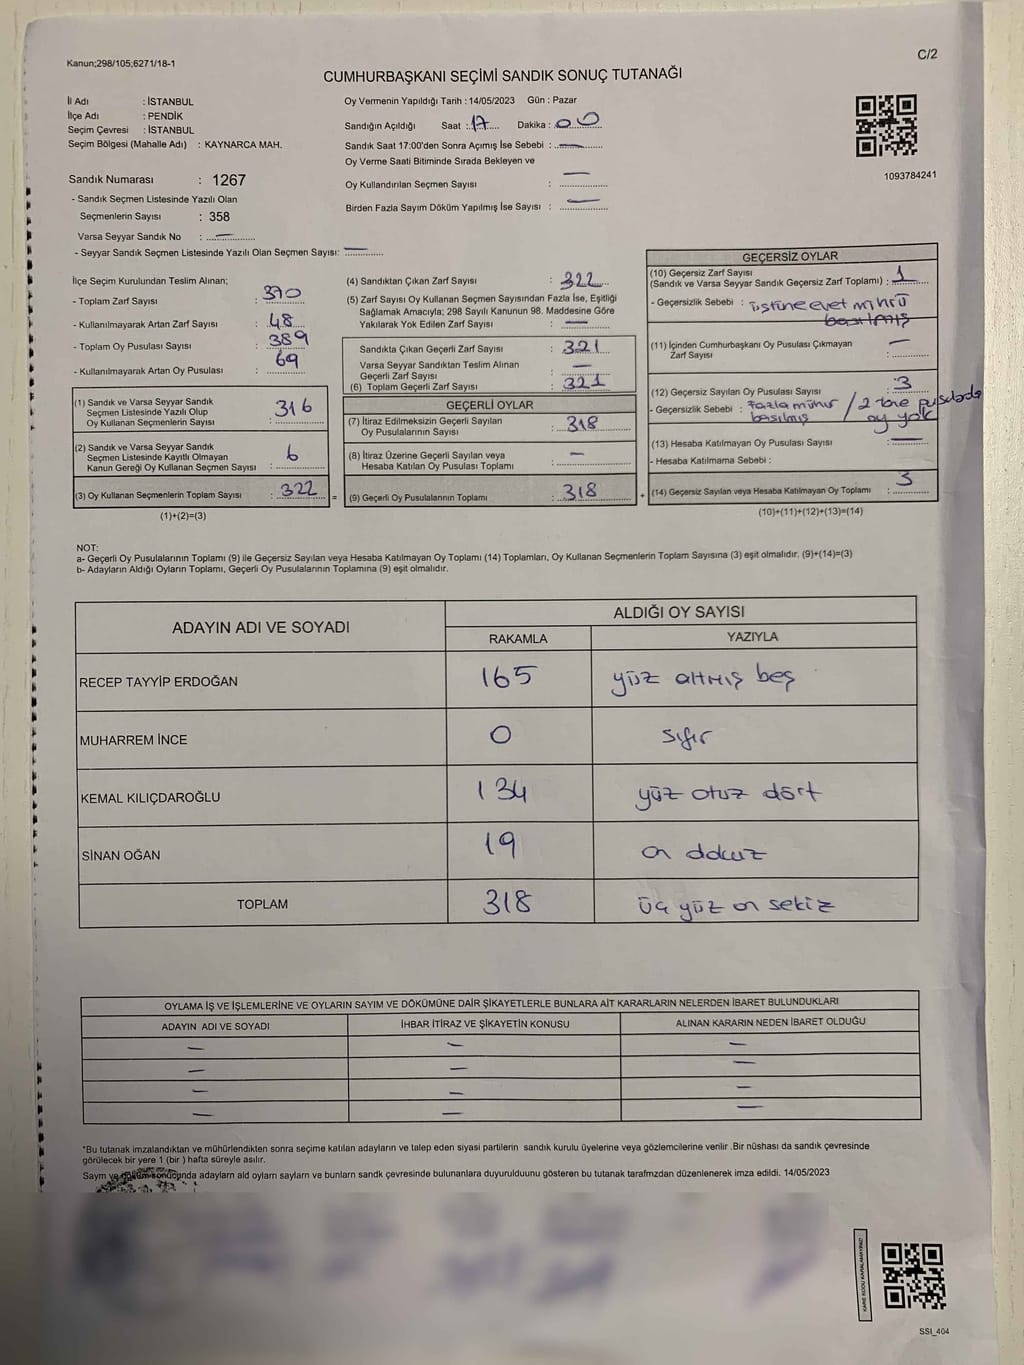 Kanun;298/105;6271/18-1
C/2
CUMHURBAŞKANI SEÇİMİ SANDIK SONUÇ TUTANAĞI
İl Adı : İSTANBUL
İlçe Adı : PENDİK
Seçim Çevresi : İSTANBUL
Seçim Bölgesi (Mahalle Adı) : KAYNARCA MAH.
Sandık Numarası : 1267
- Sandık Seçmen Listesinde Yazılı Olan
Seçmenlerin Sayısı : 358
Varsa Seyyar Sandık No : —
- Seyyar Sandık Seçmen Listesinde Yazılı Olan Seçmen Sayısı: —
Oy Vermenin Yapıldığı Tarih : 14/05/2023 Gün : Pazar
Sandığın Açıldığı Saat : 17 Dakika : 00
Sandık Saat 17:00'den Sonra Açımış İse Sebebi : —
Oy Verme Saati Bitiminde Sırada Bekleyen ve
Oy Kullandırılan Seçmen Sayısı : —
Birden Fazla Sayım Döküm Yapılmış İse Sayısı : —
1093784241
İlçe Seçim Kurulundan Teslim Alınan;
- Toplam Zarf Sayısı : 370
- Kullanılmayarak Artan Zarf Sayısı : 48
- Toplam Oy Pusulası Sayısı : 389
- Kullanılmayarak Artan Oy Pusulası : 69
(1) Sandık ve Varsa Seyyar Sandık
Seçmen Listesinde Yazılı Olup
Oy Kullanan Seçmenlerin Sayısı : 316
(2) Sandık ve Varsa Seyyar Sandık
Seçmen Listesinde Kayıtlı Olmayan
Kanun Gereği Oy Kullanan Seçmen Sayısı : 6
(3) Oy Kullanan Seçmenlerin Toplam Sayısı : 322
(1)+(2)=(3)
(4) Sandıktan Çıkan Zarf Sayısı : 322
(5) Zarf Sayısı Oy Kullanan Seçmen Sayısından Fazla İse, Eşitliği
Sağlamak Amacıyla; 298 Sayılı Kanunun 98. Maddesine Göre
Yakılarak Yok Edilen Zarf Sayısı : —
Sandıkta Çıkan Geçerli Zarf Sayısı : 321
Varsa Seyyar Sandıktan Teslim Alınan
Geçerli Zarf Sayısı : —
(6) Toplam Geçerli Zarf Sayısı : 321
GEÇERLİ OYLAR
(7) İtiraz Edilmeksizin Geçerli Sayılan
Oy Pusulalarının Sayısı : 318
(8) İtiraz Üzerine Geçerli Sayılan veya
Hesaba Katılan Oy Pusulası Toplamı : —
= (9) Geçerli Oy Pusulalarının Toplamı : 318
GEÇERSİZ OYLAR
(10) Geçersiz Zarf Sayısı
(Sandık ve Varsa Seyyar Sandık Geçersiz Zarf Toplamı) : 1
- Geçersizlik Sebebi : üstüne evet mührü
basılmış
(11) İçinden Cumhurbaşkanı Oy Pusulası Çıkmayan
Zarf Sayısı : —
(12) Geçersiz Sayılan Oy Pusulası Sayısı : 3
- Geçersizlik Sebebi : fazla mühür / 2 tane pusulada
basılmış oy yok
(13) Hesaba Katılmayan Oy Pusulası Sayısı : —
- Hesaba Katılmama Sebebi :
+ (14) Geçersiz Sayılan veya Hesaba Katılmayan Oy Toplamı : 3
(10)+(11)+(12)+(13)=(14)
NOT:
a- Geçerli Oy Pusulalarının Toplamı (9) ile Geçersiz Sayılan veya Hesaba Katılmayan Oy Toplamı (14) Toplamları, Oy Kullanan Seçmenlerin Toplam Sayısına (3) eşit olmalıdır. (9)+(14)=(3)
b- Adayların Aldığı Oyların Toplamı, Geçerli Oy Pusulalarının Toplamına (9) eşit olmalıdır.
ADAYIN ADI VE SOYADI
ALDIĞI OY SAYISI
RAKAMLA YAZIYLA
RECEP TAYYİP ERDOĞAN 165 yüz altmış beş
MUHARREM İNCE 0 sıfır
KEMAL KILIÇDAROĞLU 134 yüz otuz dört
SİNAN OĞAN 19 on dokuz
TOPLAM 318 üç yüz on sekiz
OYLAMA İŞ VE İŞLEMLERİNE VE OYLARIN SAYIM VE DÖKÜMÜNE DAİR ŞİKAYETLERLE BUNLARA AİT KARARLARIN NELERDEN İBARET BULUNDUKLARI
ADAYIN ADI VE SOYADI İHBAR İTİRAZ VE ŞİKAYETİN KONUSU ALINAN KARARIN NEDEN İBARET OLDUĞU
— — —
— — —
— — —
— — —
*Bu tutanak imzalandıktan ve mühürlendikten sonra seçime katılan adayların ve talep eden siyasi partilerin sandık kurulu üyelerine veya gözlemcilerine verilir .Bir nüshası da sandık çevresinde
görülecek bir yere 1 (bir ) hafta süreyle asılır.
Saym ve döküm sonucunda adaylarm ald oylarm saylarm ve bunlarm sandk çevresinde bulunanlara duyurulduunu gösteren bu tutanak tarafmzdan düzenlenerek imza edildi. 14/05/2023
KARE KODU KARALAMAYINIZ
SSI_404